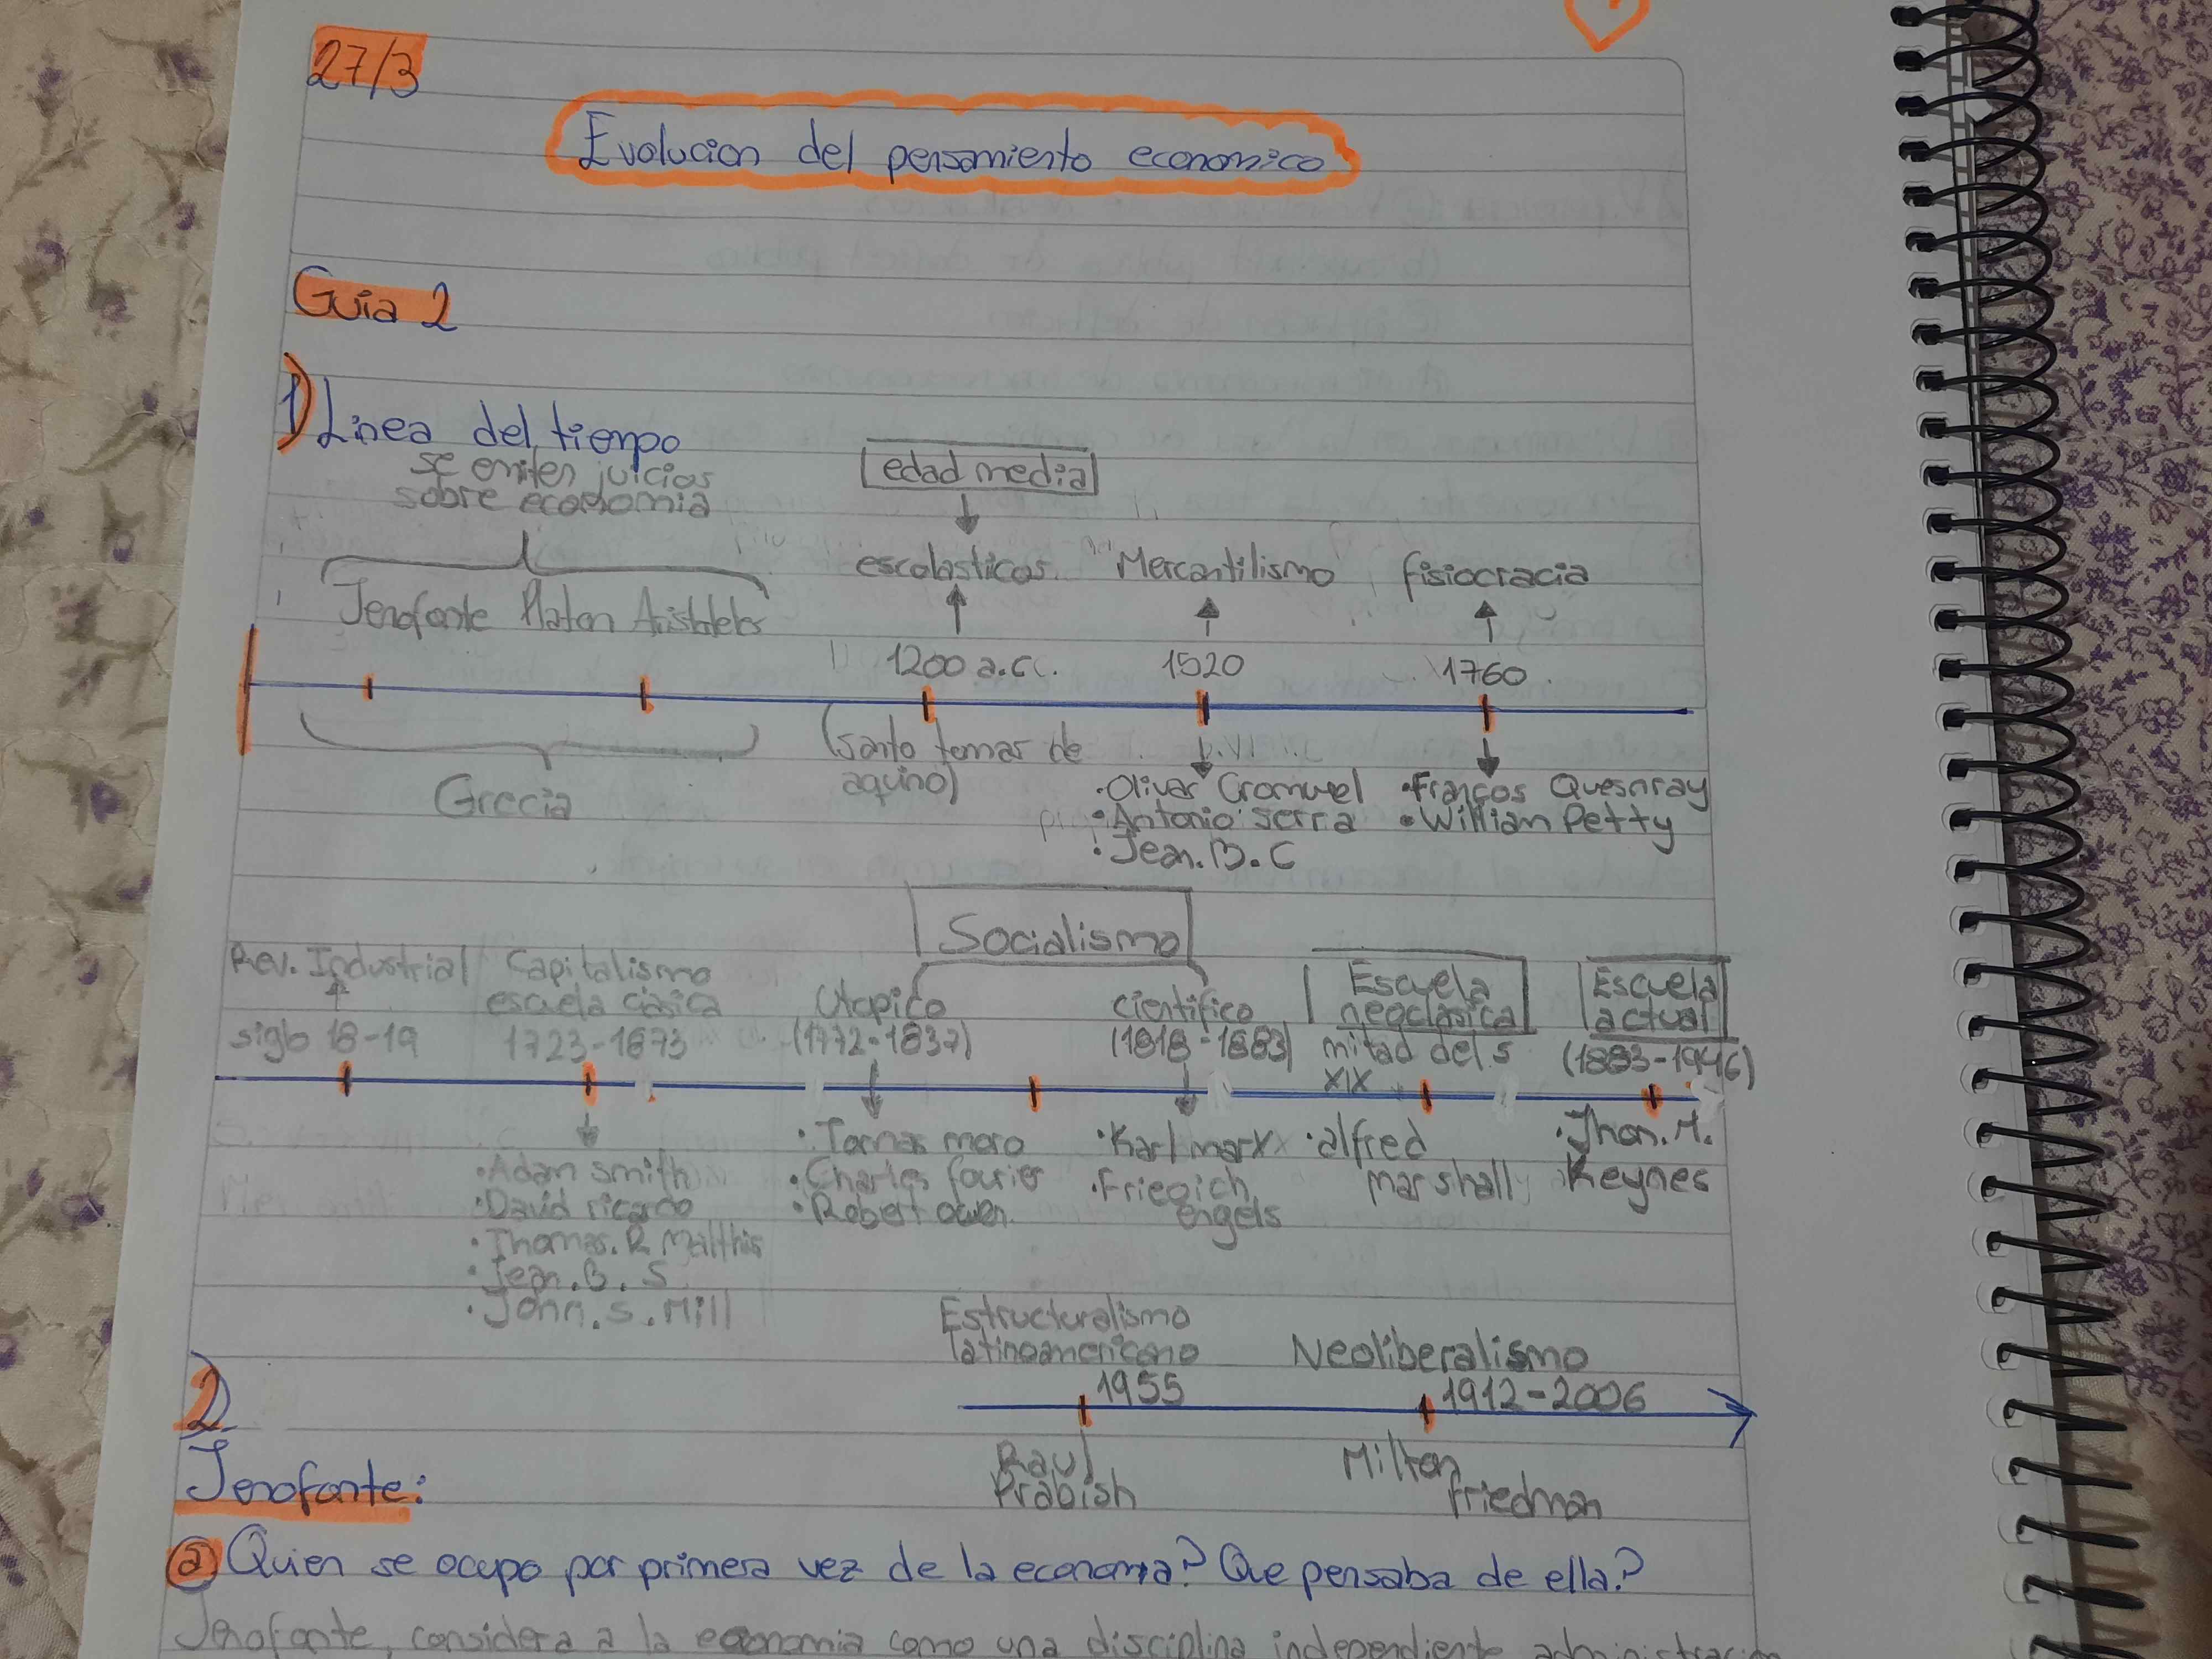 27/3
Evolucion del pensamiento economico
Guia 2
1) Linea del tiempo
se emiten juicios
sobre economia
edad media
escolasticos Mercantilismo fisiocracia
Jenofonte Platon Aristoteles
1200 a.C. 1520 1760
Grecia
(santo tomas de
aquino)
• Oliver Cromwel
• Antonio serra
• Jean. B. C
• François Quesnray
• William Petty
Socialismo
Rev. Industrial
siglo 18-19
Capitalismo
escuela clasica
1723-1873
Utopico
(1772-1837)
cientifico
(1818-1883)
Escuela
neoclasica
mitad del s
XIX
Escuela
actual
(1883-1946)
• Adam smith
• David ricardo
• Thomas. R Malthis
• Jean. B. S
• John. S. Mill
• Tomas moro
• Charles fourier
• Robert owen
• Karl marx
• Friegich
engels
• alfred
marshall
• Jhon. M.
Keynes
Estructuralismo
latinoamericano
1955
Neoliberalismo
1912-2006
Raul
Prabish
Milton
friedman
2)
Jenofonte:
a) Quien se ocupo por primera vez de la economia? Que pensaba de ella?
Jenofonte, considera a la economia como una disciplina independiente administracion